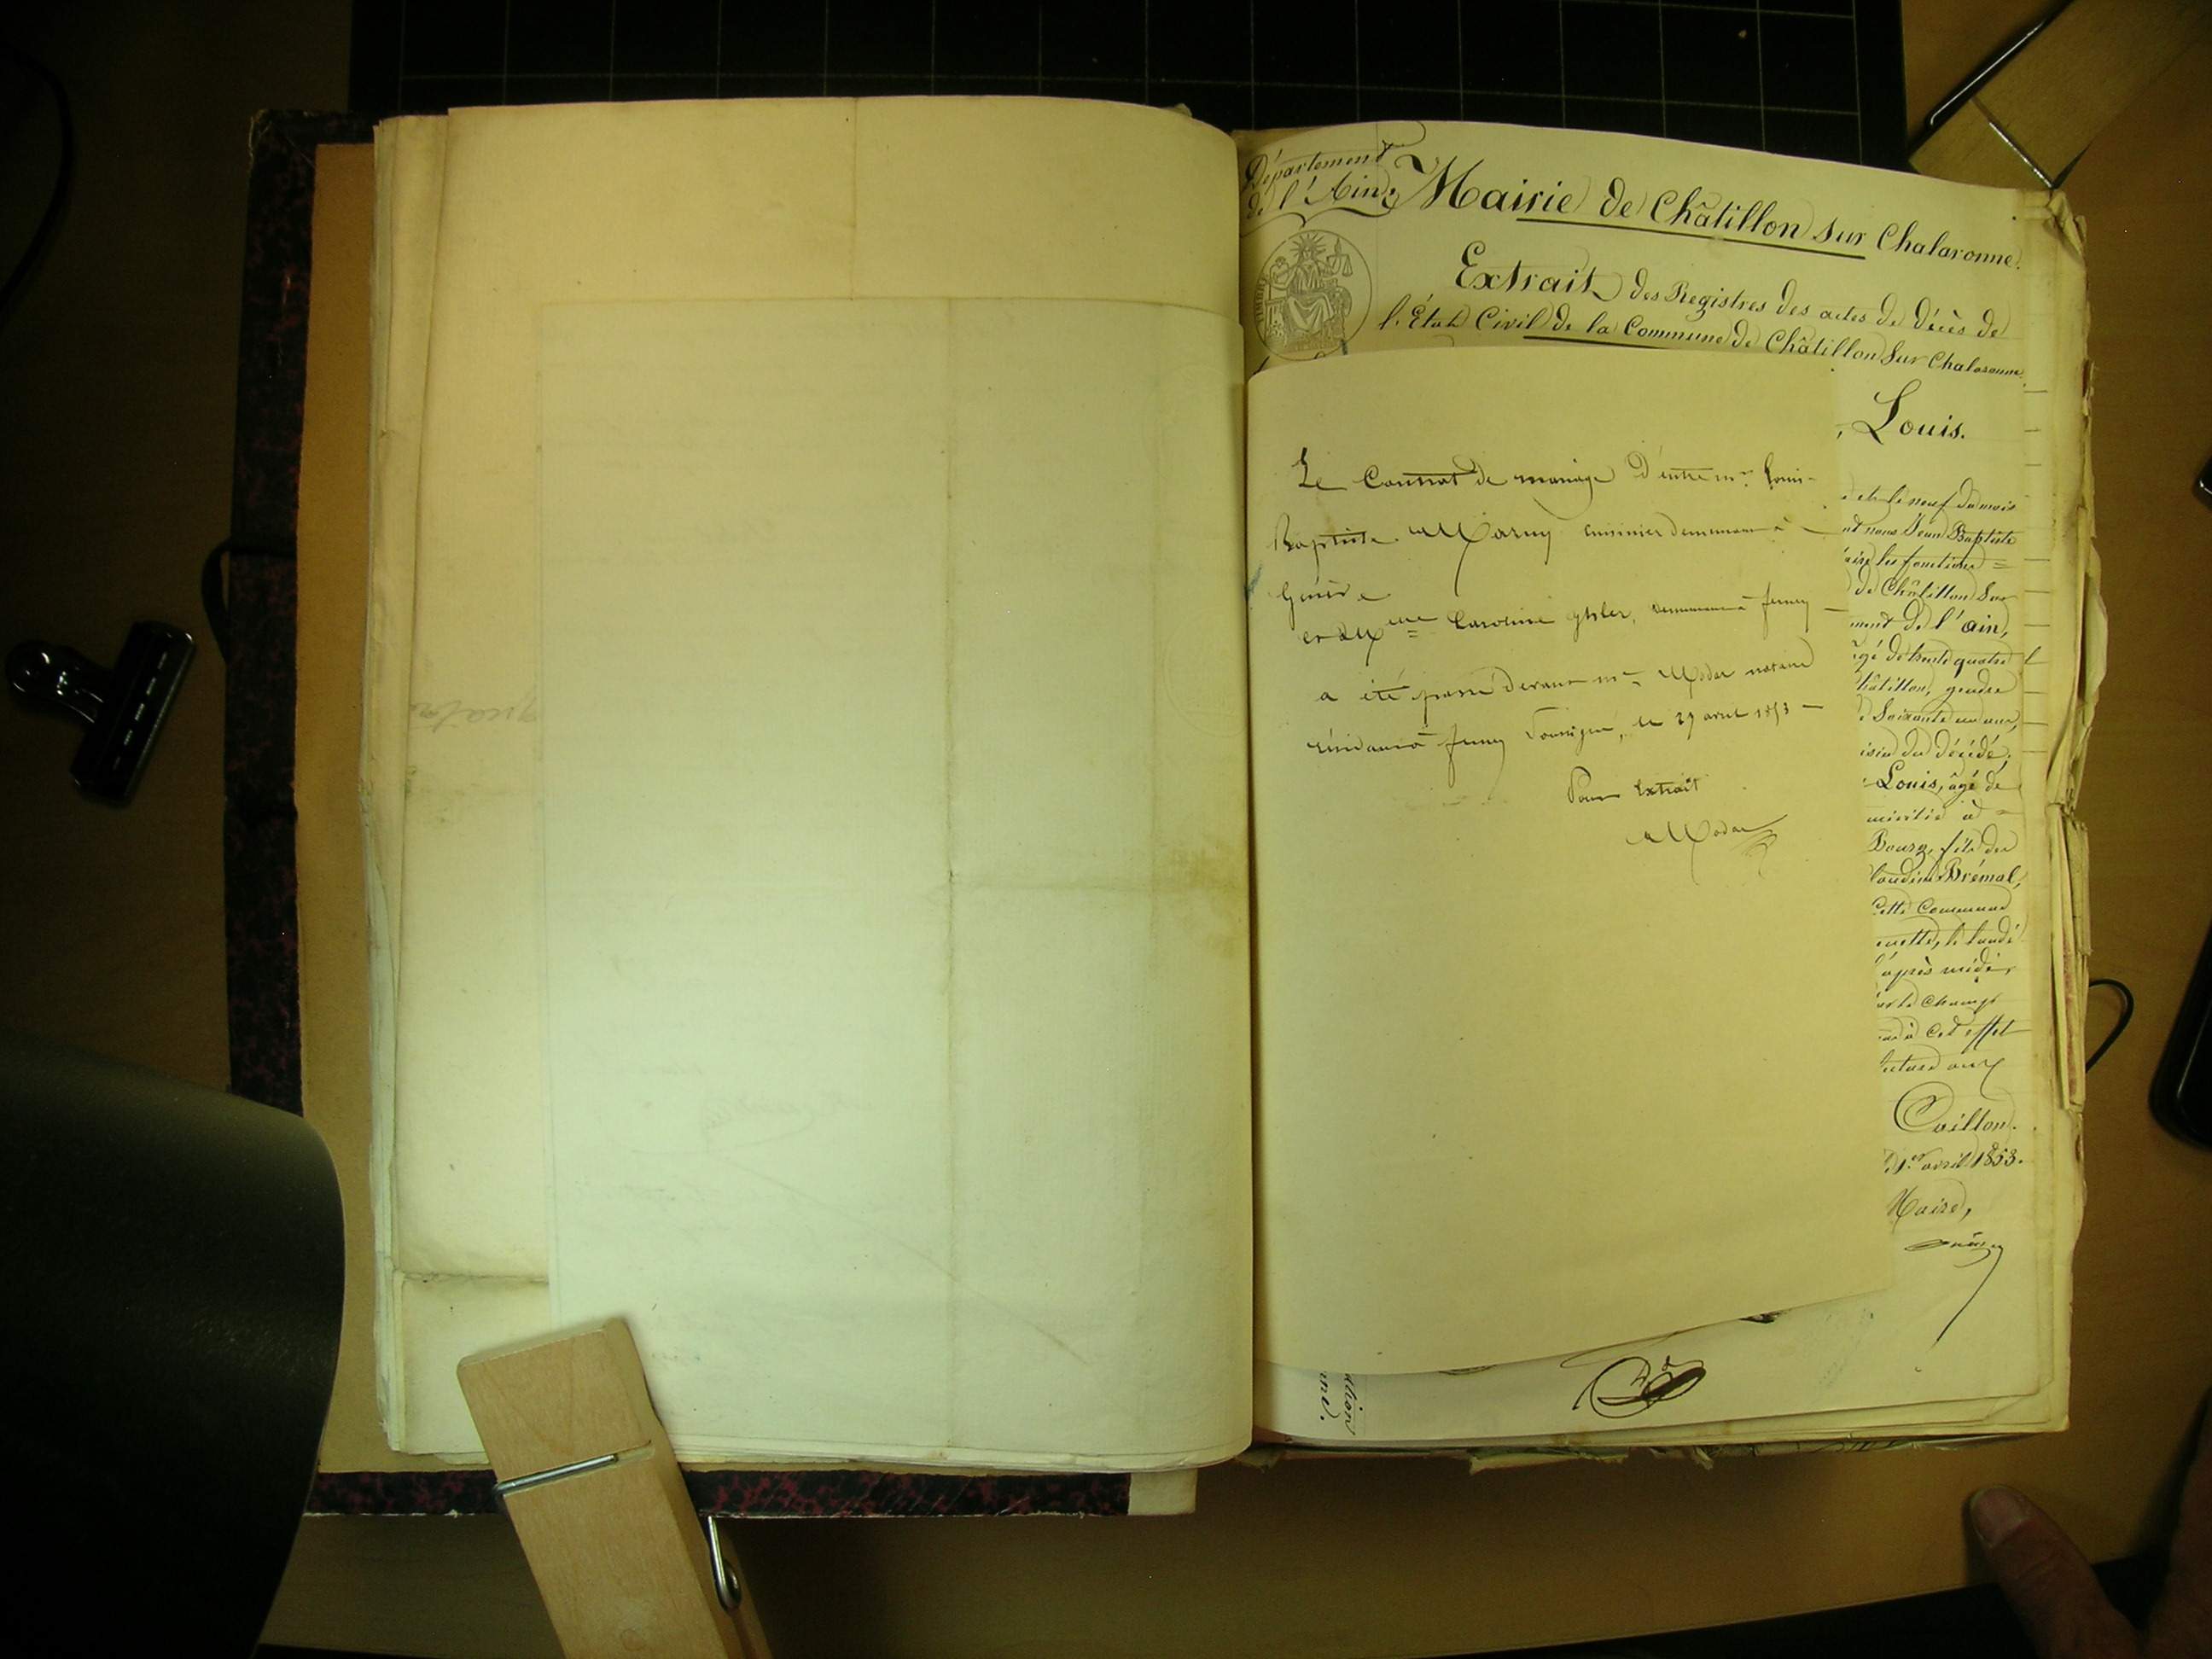 Département
de l'Ain
Mairie de Châtillon sur Chalaronne.
Extrait des Registres des actes de décès de
l'État Civil de la Commune de Châtillon sur Chalaronne
Louis.
Le Contrat de mariage d'entre mr. Louis
Baptiste Marny cuisinier demeurant à
Genève
et Melle Caroline demeurant à ferney
a été passé devant me. Modas notaire
résidant à ferney Voltaire, le 29 avril 1853
Pour Extrait
Modas
et le neuf du mois
nt nous Jean Baptiste
aire les fonctions =
de Châtillon sur
ment de l'ain,
gé de trente quatre
hatillon, gendre
Soixante un ans,
isin du décédé,
Louis, âgé de
à
Bourg, fils de
laudine Brémal,
Cette Commune
uette, le lundi
'après midi,
sur le champ
à cet effet
lecture aux
Coillon.
1er avril 1853.
Maire,
ation
nne.